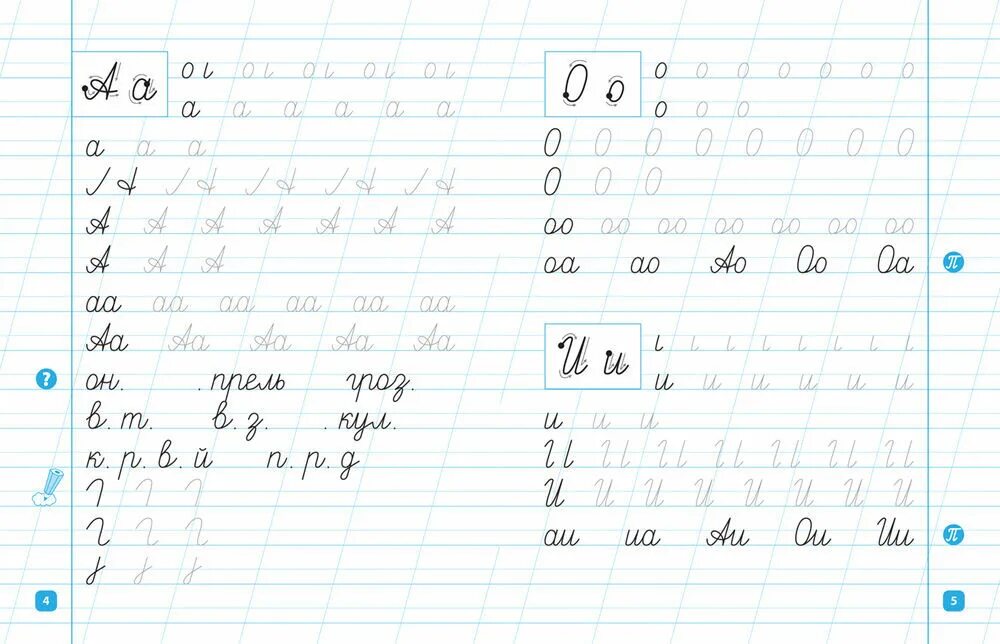 А а
а а а а а а
а а а
А А А А А А А
А А А
аа аа аа аа аа аа
Аа Аа Аа Аа Аа
?
он. .прель гроз.
в.т. в.з. .кул.
к.р.в.й п.р.д
4
О о
о о о о о о о
о о о
О О О О О О О О
О О О
оо оо оо оо оо оо оо
оа ао Ао Оо Оа
п
И и
и и и и и и
и и и
И И И И И И И И
аи иа Аи Ои Ии
п
5